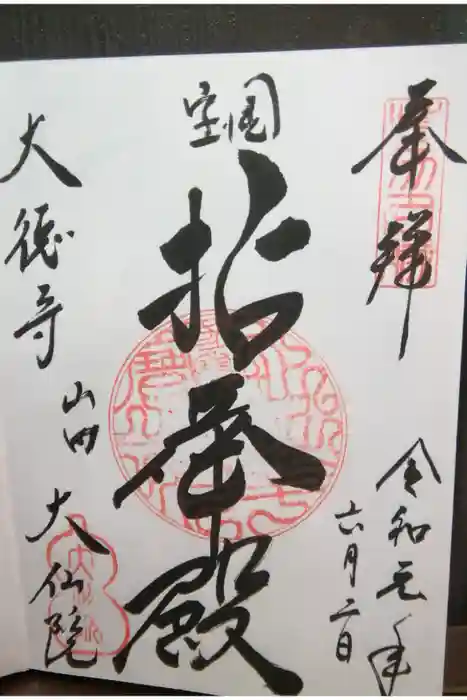 奉拝
令和元年
六月二日
国宝
拈華殿
大徳寺 山内 大仙院